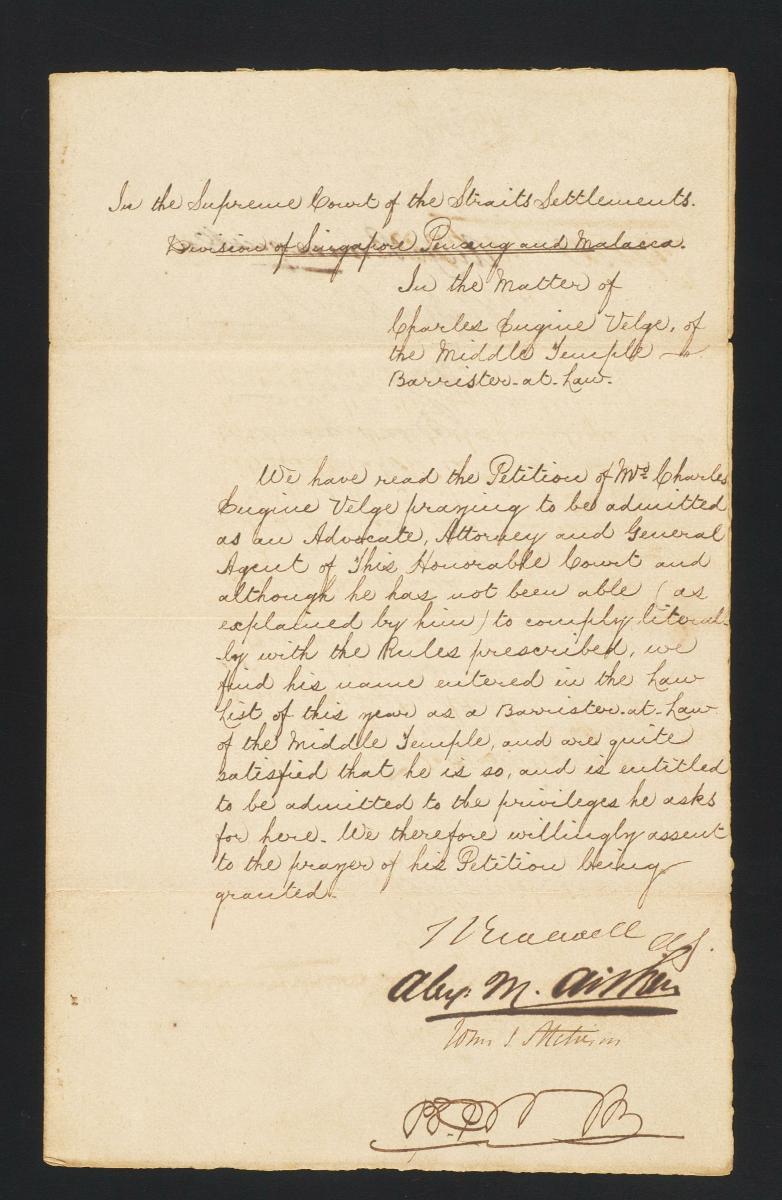 In the Supreme Court of the Straits Settlements.
Division of Singapore Penang and Malacca.
In the Matter of
Charles Eugine Velge, of
the Middle Temple
Barrister-at-Law.
We have read the Petition of Mr. Charles
Eugine Velge praying to be admitted
as an Advocate, Attorney and General
Agent of This Honorable Court and
although he has not been able (as
explained by him) to comply literal-
ly with the Rules prescribed, we
find his name entered in the Law
List of this year as a Barrister-at-Law
of the Middle Temple, and are quite
satisfied that he is so, and is entitled
to be admitted to the privileges he asks
for here. We therefore willingly assent
to the prayer of his Petition being
granted.
Braddell
Alex. M. Aitken
John S Atchison